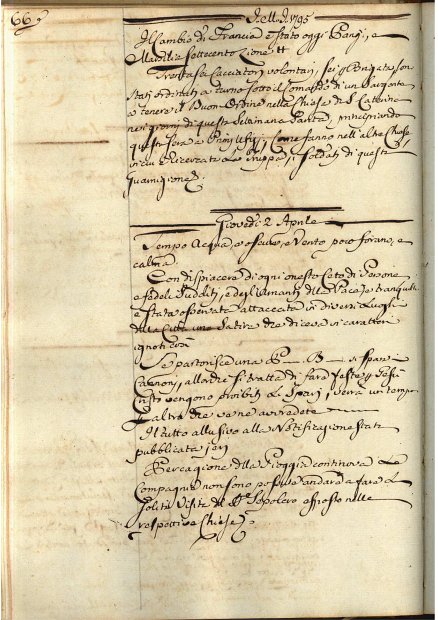 66
1795
Il Cambio di Francia è stato oggi Parigi, e
Marsilia settecento Lione
Trentasei Cacciatori volontari, sei Brigata son
stati ordinati a turno sotto il Comando di un Sargente
a tenere il Buon Ordine nella Chiesa di S. Caterina
nei giorni di questa Settimana Santa, principiando
questa sera a Proffeszj, Come fanno nell'altre Chiese
in cui è ricercata La truppa, i soldati di questa
guarnigione
Giovedì 2 Aprile
Tempo Acqua, e oscuro, e Vento poco forano, e
calma.
Con dispiacere di ogni onesto ceto di Persone
e fedeli sudditi, e degli amanti della Pace, e tranquill.
è stata osservata attaccata in diversi Luoghi
della Città una Satira che diceva in caratteri
ignoti così
Se partorisce una P B si spara
Cannoni, allorchè si tratta di fare feste per Gesù
Cristo vengono proibiti Li spari, verrà un tempo
l'altro che ve ne avvedrete
Il tutto allusivo alla Notificazione stata
pubblicata jeri
Per cagione della Pioggia continova Le
Compagnie non sono possute andare a fare Le
solite Visite del S. Sepolcro esposto nelle
respettive Chiese